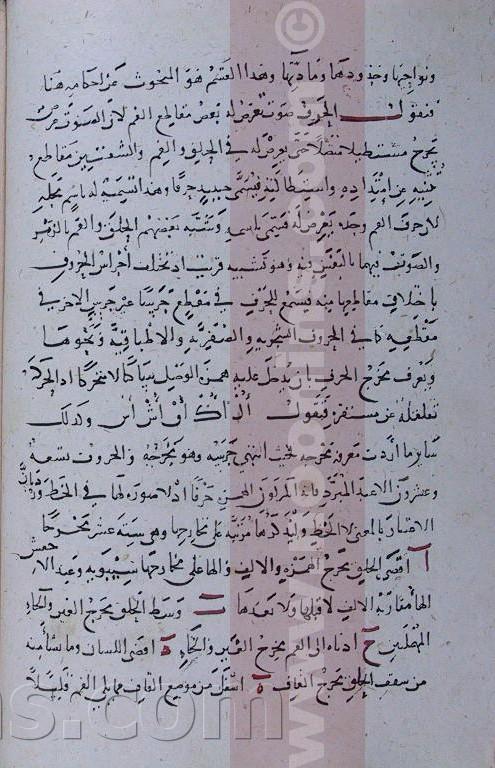 وحدودها ومادتها وهذا القسم هو المبحوث عن احكامه هنا
فنقول الحرف صوت يعرض له بعض مقاطع الفم لان الصوت عرض
يخرج مستطيلا متصلا حتى يعرض له في الحلق والفم والشفتين مقاطع
عن امتداده واستطالته فيسمى حينئذ حرفا وهذا تسمية له باسم محله
لان حرف الفم وحده يعرض له فيسمى باسمه وشبه بعضهم الحلق والفم بالزمر
والصوت فيهما بالنفس فيه وهو تشبيه قريب اذ تختلف اجراس الحروف
باختلاف مقاطعها منه فيسمع للحرف في مقطع جرسا غير جرس الاخر في
مقطعه كما في الحروف الشجرية والصفيرية والاطباقية ونحوها
ويعرف مخرج الحرف بان يدخل عليه همزة الوصل ساكنا لا متحركا اذ الحركة
تقلقله عن مستقره فيقول اك او اش وكذلك
سائر ما اردت معرفة مخرجه فحيث انتهى جرسه وهو مخرجه والحروف تسعة
وعشرون الا عند المبرد فانه لم ير الهمز حرفا اذ لا صورة لها في الخط ورد بان
الاعتبار بالمعنى لا الخط ولنذكرها مرتبة على مخارجها وهي ستة عشر مخرجا
ا اقصى الحلق يخرج الهمزة والالف والها على مخارجها سيبويه وعند الاخفش
الها مقارنة الالف لا قبلها ولا بعدها ب وسط الحلق يخرج العين والحاء
المهملتين ج ادناه الى الفم يخرج الغين والخاء د اقصى اللسان وما سامته
من سقف الحلق يخرج القاف ه اسفل من موضع القاف مما يلي الفم قليلا
www.
.com
ns.com
©